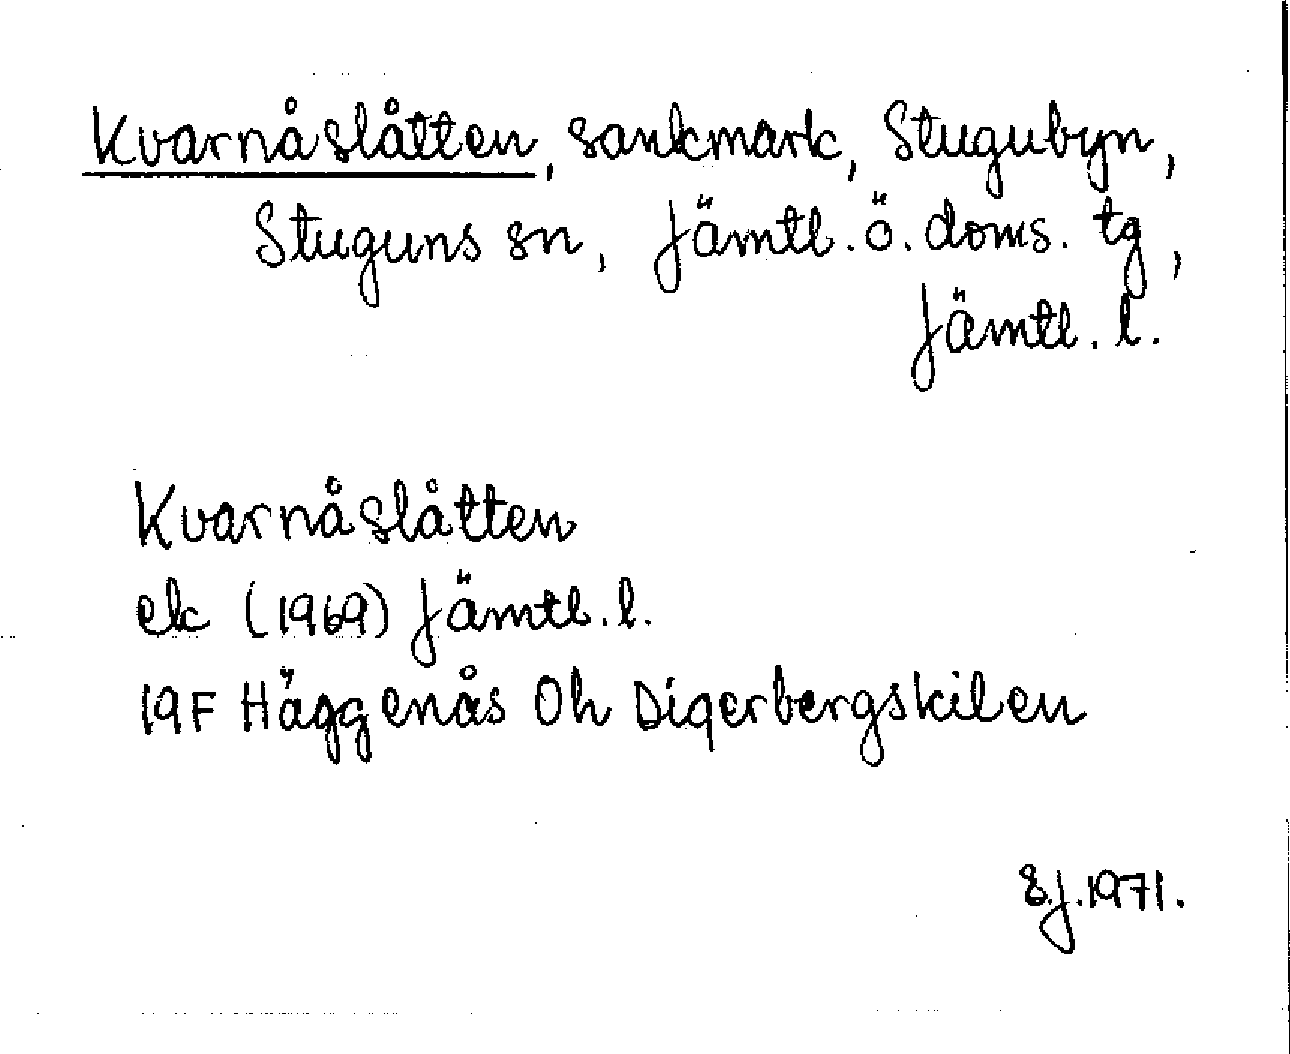 Kvarnåslåtten, sankmark, Stugubyn,
Stuguns sn, Jämtl. ö. doms. tg,
Jämtl. l.
Kvarnåslåtten
ek (1969) Jämtl. l.
19F Häggenås 0h Digerbergskilen
S.J. 1971.